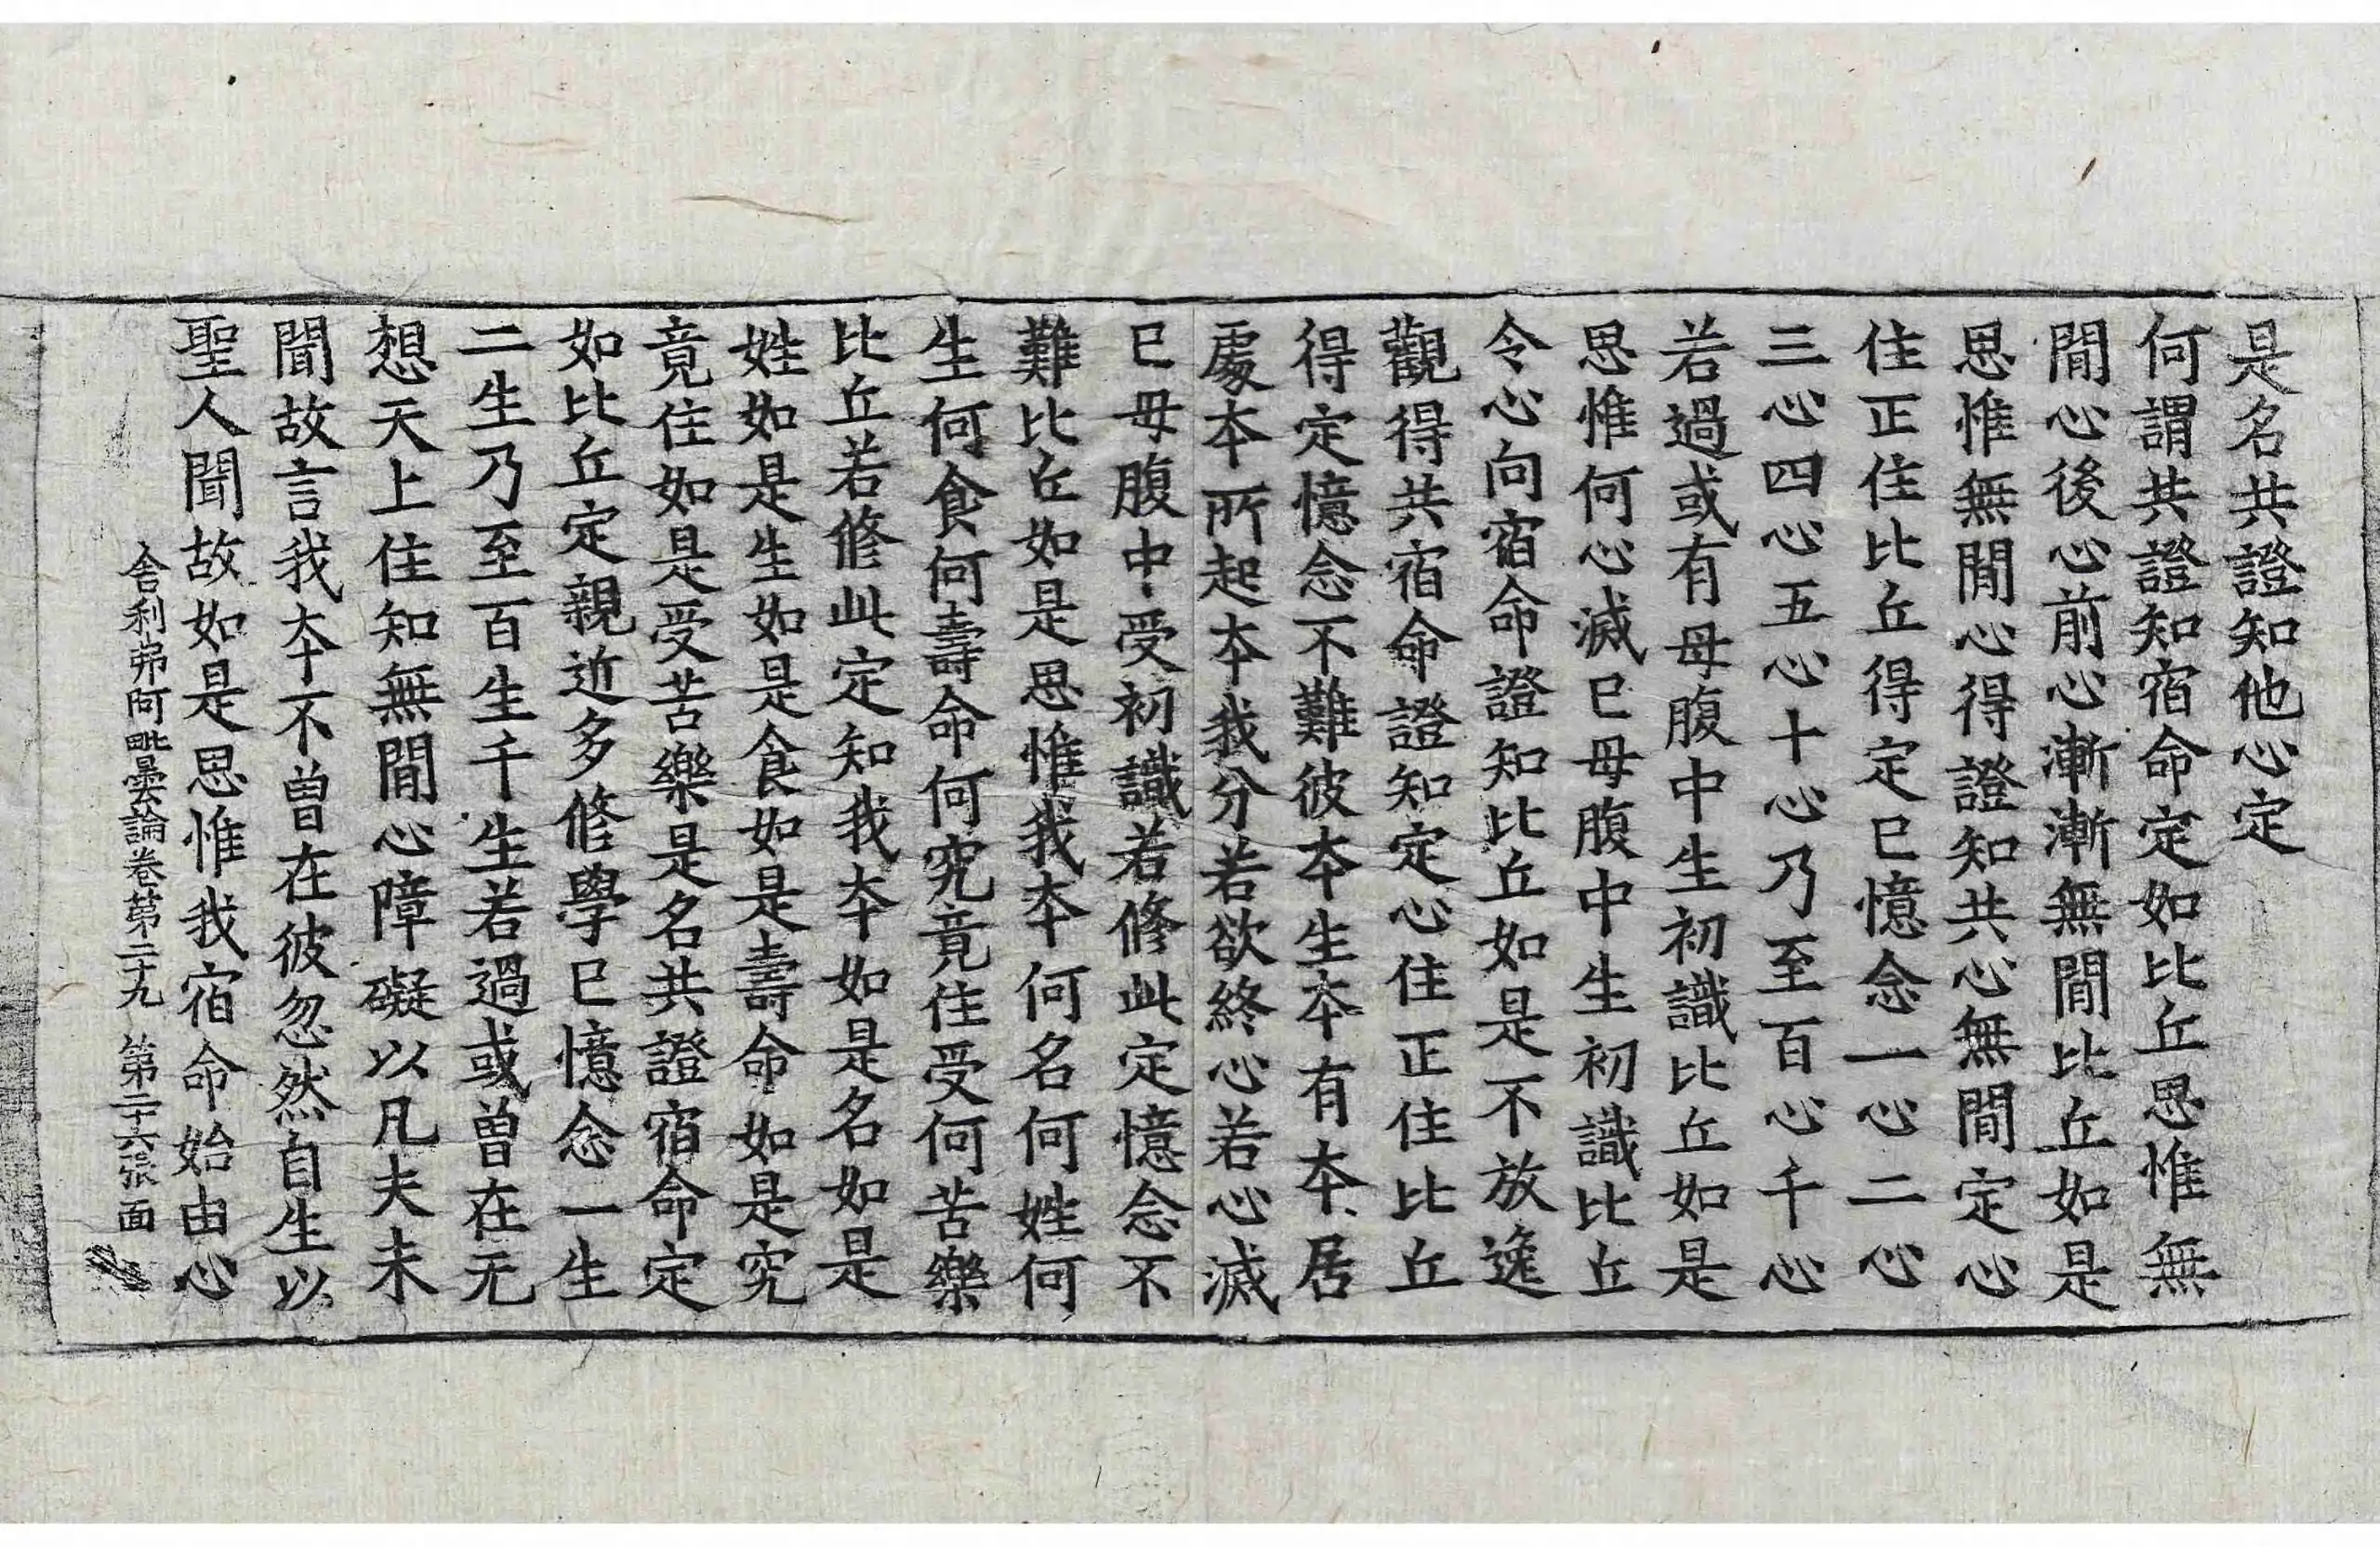 是名共證知他心定
何謂共證知宿命定如比丘思惟無
閒心後心前心漸漸無閒比丘如是
思惟無閒心得證知共心無閒定心
住正住比丘得定已憶念一心二心
三心四心五心十心乃至百心千心
若過或有母腹中生初識比丘如是
思惟何心滅已母腹中生初識比丘
令心向宿命證知比丘如是不放逸
觀得共宿命證知定心住正住比丘
得定憶念不難彼夲生夲有夲居
處夲所起夲我分若欲終心若心滅
已母腹中受初識若修此定憶念不
難比丘如是思惟我夲何名何姓何
生何食何壽命何究竟住受何苦樂
比丘若修此定知我夲如是名如是
姓如是生如是食如是壽命如是究
竟住如是受苦樂是名共證宿命定
如比丘定親近多修學已憶念一生
二生乃至百生千生若過或曾在无
想天上住知無閒心障礙以凡夫未
聞故言我夲不曾在彼忽然自生以
聖人聞故如是思惟我宿命始由心
舍利弗阿毗曇論卷第二十九 第二十六張 面